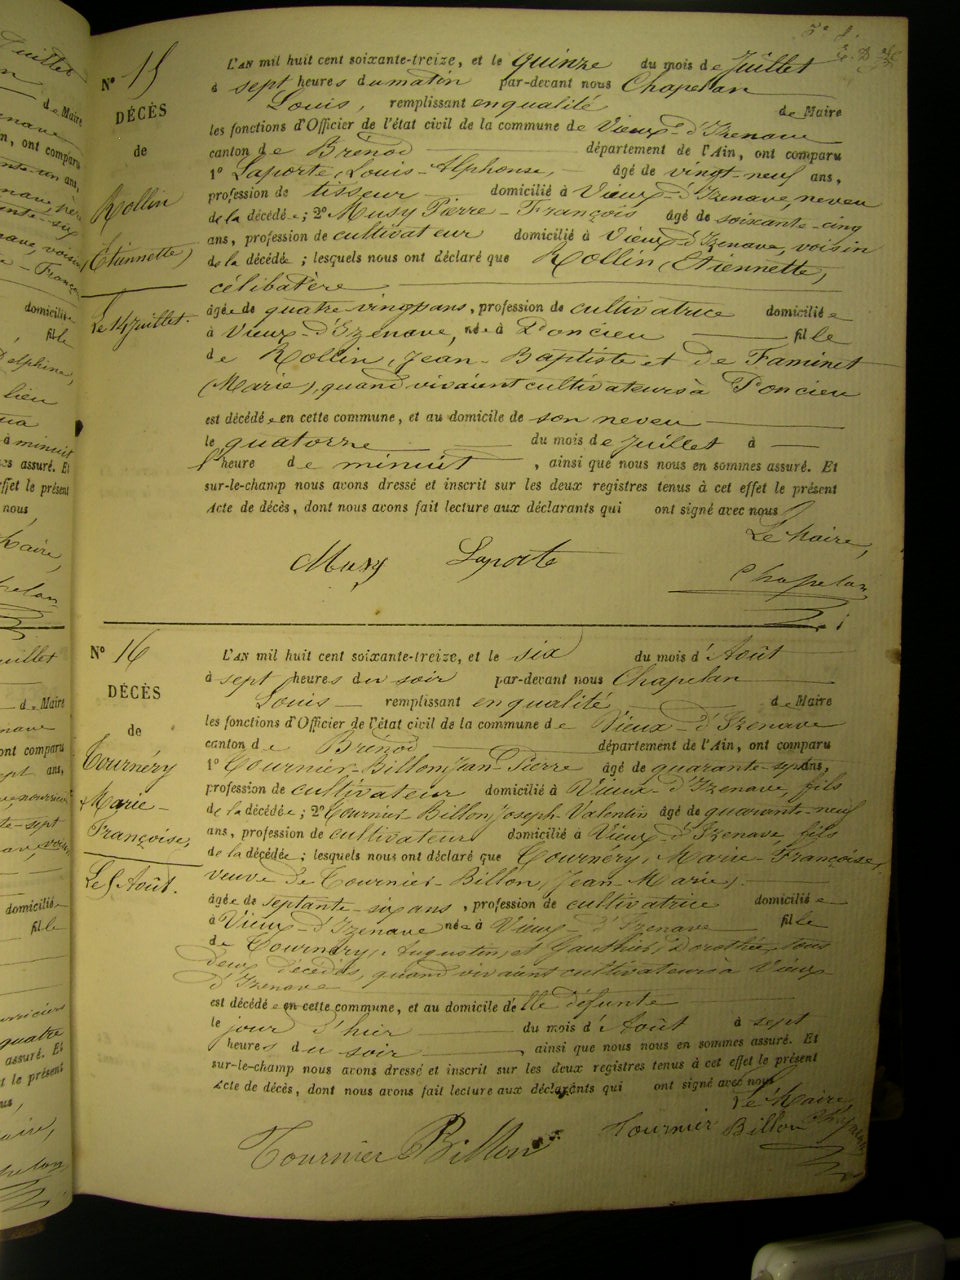 N° 15
DÉCÈS
de
Rollin
(Étiennette)
Le 14 juillet.
L'AN mil huit cent soixante-treize, et le quinze du mois de Juillet
à sept heures du matin par-devant nous Chapelan
Louis, remplissant en qualité de Maire
les fonctions d'Officier de l'état civil de la commune de Vieux-d'Izenave
canton de Brénod département de l'Ain, ont comparu
1° Laporte, Louis-Alphonse, âgé de vingt-neuf ans,
profession de tisseur domicilié à Vieux-d'Izenave, neveu
de la décédée ; 2° Musy Pierre-François âgé de soixante-cinq
ans, profession de cultivateur domicilié à Vieux-d'Izenave, voisin
de la décédée ; lesquels nous ont déclaré que Rollin (Étiennette,
célibatère
âgée de quatre vingt ans, profession de cultivatrice domiciliée
à Vieux-d'Izenave, née à Poncieu fille
de Rollin, Jean-Baptiste et de Faminet
(Marie), quand vivaient cultivateurs à Poncieu
est décédée en cette commune, et au domicile de son neveu
le quatorze du mois de Juillet à
l'heure de minuit, ainsi que nous nous en sommes assuré. Et
sur-le-champ nous avons dressé et inscrit sur les deux registres tenus à cet effet le présent
Acte de décès, dont nous avons fait lecture aux déclarants qui ont signé avec nous
Le Maire,
Musy Laporte
Chapelan
N° 16
DÉCÈS
de
Tournéry
Marie-
Françoise,
Le 5 Août.
L'AN mil huit cent soixante-treize, et le six du mois d'Août
à sept heures du soir par-devant nous Chapelan
Louis remplissant en qualité de Maire
les fonctions d'Officier de l'état civil de la commune de Vieux-d'Izenave
canton de Brénod département de l'Ain, ont comparu
1° Tournier-Billon Jean-Pierre âgé de quarante-sept ans,
profession de cultivateur domicilié à Vieux-d'Izenave, fils
de la décédée ; 2° Tournier-Billon Joseph-Valentin âgé de quarante-neuf
ans, profession de cultivateur domicilié à Vieux-d'Izenave, fils
de la décédée ; lesquels nous ont déclaré que Tournéry, Marie-Françoise,
veuve de Tournier-Billon, (Jean-Marie)
âgée de septante-six ans, profession de cultivatrice domiciliée
à Vieux-d'Izenave née à Vieux-d'Izenave fille
de Tournéry, Augustin, et Gauthier, Dorothée, tous
deux décédés, quand vivaient cultivateurs à Vieux-
d'Izenave
est décédée en cette commune, et au domicile de lle défunte
le jour d'hier du mois d'Août à sept
heures du soir, ainsi que nous nous en sommes assuré. Et
sur-le-champ nous avons dressé et inscrit sur les deux registres tenus à cet effet le présent
Acte de décès, dont nous avons fait lecture aux déclarants qui ont signé avec nous
Le Maire,
Tournier Billon Tournier Billon Chapelan